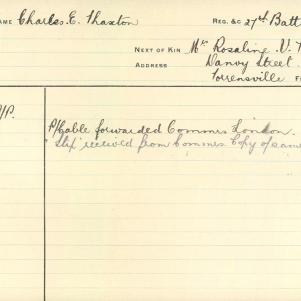 AME Charles. E. Thaxton REG. &c 27th Batt
NEXT OF KIN Mrs Rosaline. V. T
ADDRESS Danvy Street.
Torrensville
/P.
P/Cable forwarded Commrs London.
"Slip" received from Commrs Copy of same